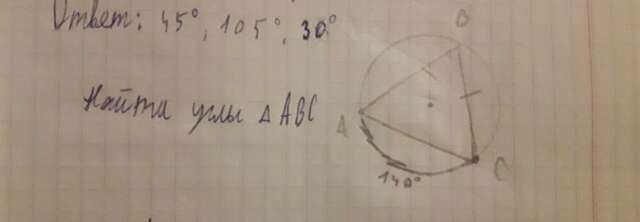 Ответ: 45°, 105°, 30°
Найти углы △ABC
B
A
C
140°